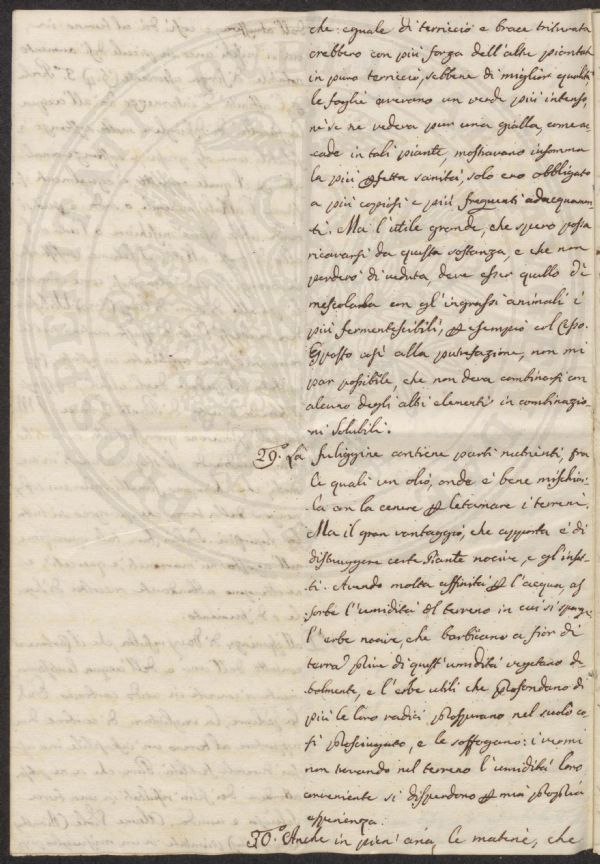 che: eguale di terriccio e brace triturata
crebbero con più forza dell'altre piantate
in puro terriccio, sebbene di miglior qualità
le foglie avevano un verde più intenso,
nè se ne vedeva pur una gialla, come ac
cade in tali piante, mostravano insomma
la più pfetta sanità, solo ero obbligato
a più copiosi e più frequenti adacquamen
ti. Ma l'utile grande, che spero possa
ricavarsi da questa sostanza, e che non
perderò di veduta, deve esser quello di
mescolarla con gl'ingrassi animali i
più fermentescibili, p esempio col Cesso.
Esposto così alla putrefazione, non mi
par possibile, che non deva combinarsi con
alcuno degli altri elementi in combinazio
ni solubili.
29.° La fuliggine contiene parti nutrienti, fra
le quali un olio, onde è bene mischiar
la con la cenere p letamare i terreni.
Ma il gran vantaggio, che apporta è di
distruggere certe Piante nocive, e gl'inset
ti. Avendo molta affinità p l'acqua, as
sorbe l'umidità del terreno in cui si sparge
l'erbe nocive, che barbicano a fior di
terra prive di quest'umidità vegetano de
bolmente, e l'erbe utili che profondano di
più le loro radici prosperano nel suolo co
sì prosciugato, e le soffogano: i vermi
non trovando nel terreno l'umidità loro
conveniente si disperdono p mia propria
esperienza.
30.° Anche in pien'aria, le materie, che